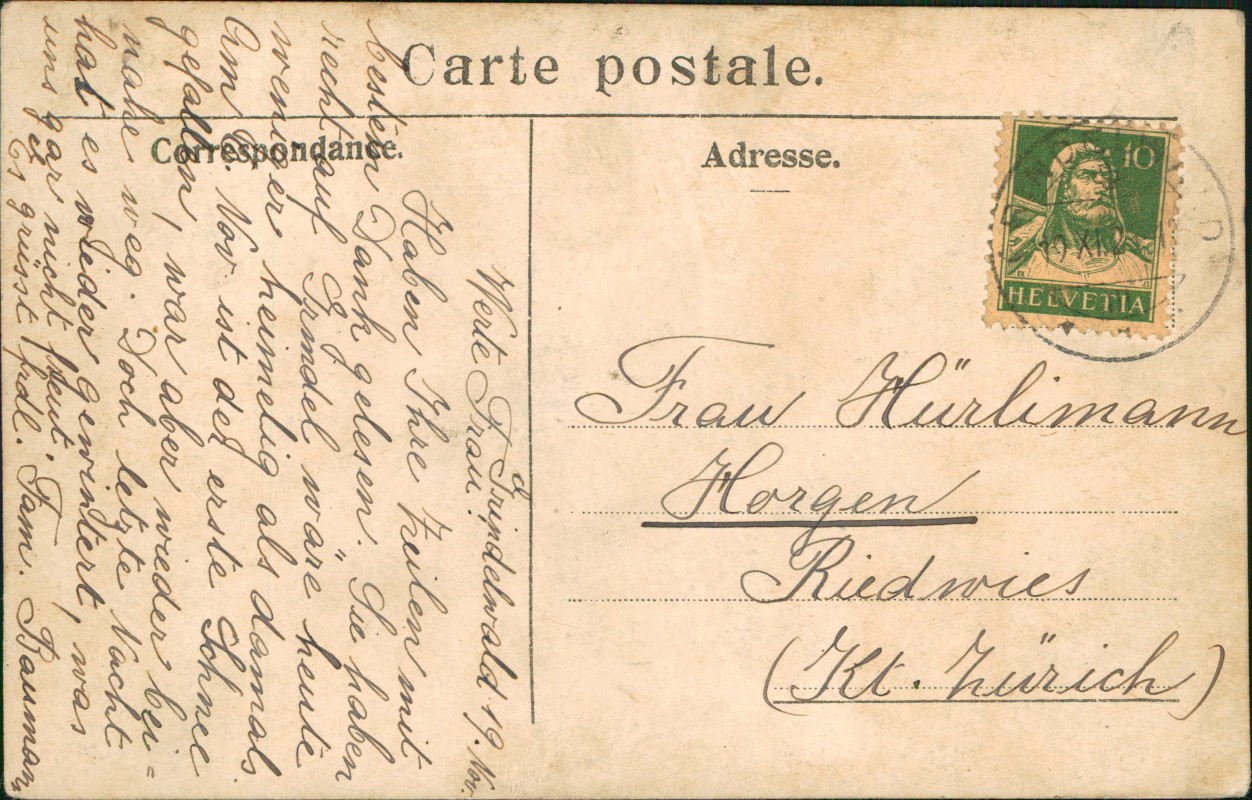 Carte postale.
Correspondance.
Adresse.
10
HELVETIA
19 XI.
Grindelwald 19. Nov.
Werte Frau!
Haben Ihre Zeilen mit
bestem Dank gelesen. Sie haben
recht auf Grindel wäre heute
weniger heimelig als damals.
Am 6. Nov. ist der erste Schnee
gefallen, war aber wieder bei-
nahe weg. Doch letzte Nacht
hat es wieder gewintert, was
uns gar nicht freut.
Es grüsst frdl. Fam. Bauman
Frau Hürlimann
Horgen
Riedwies
(Kt. Zürich)